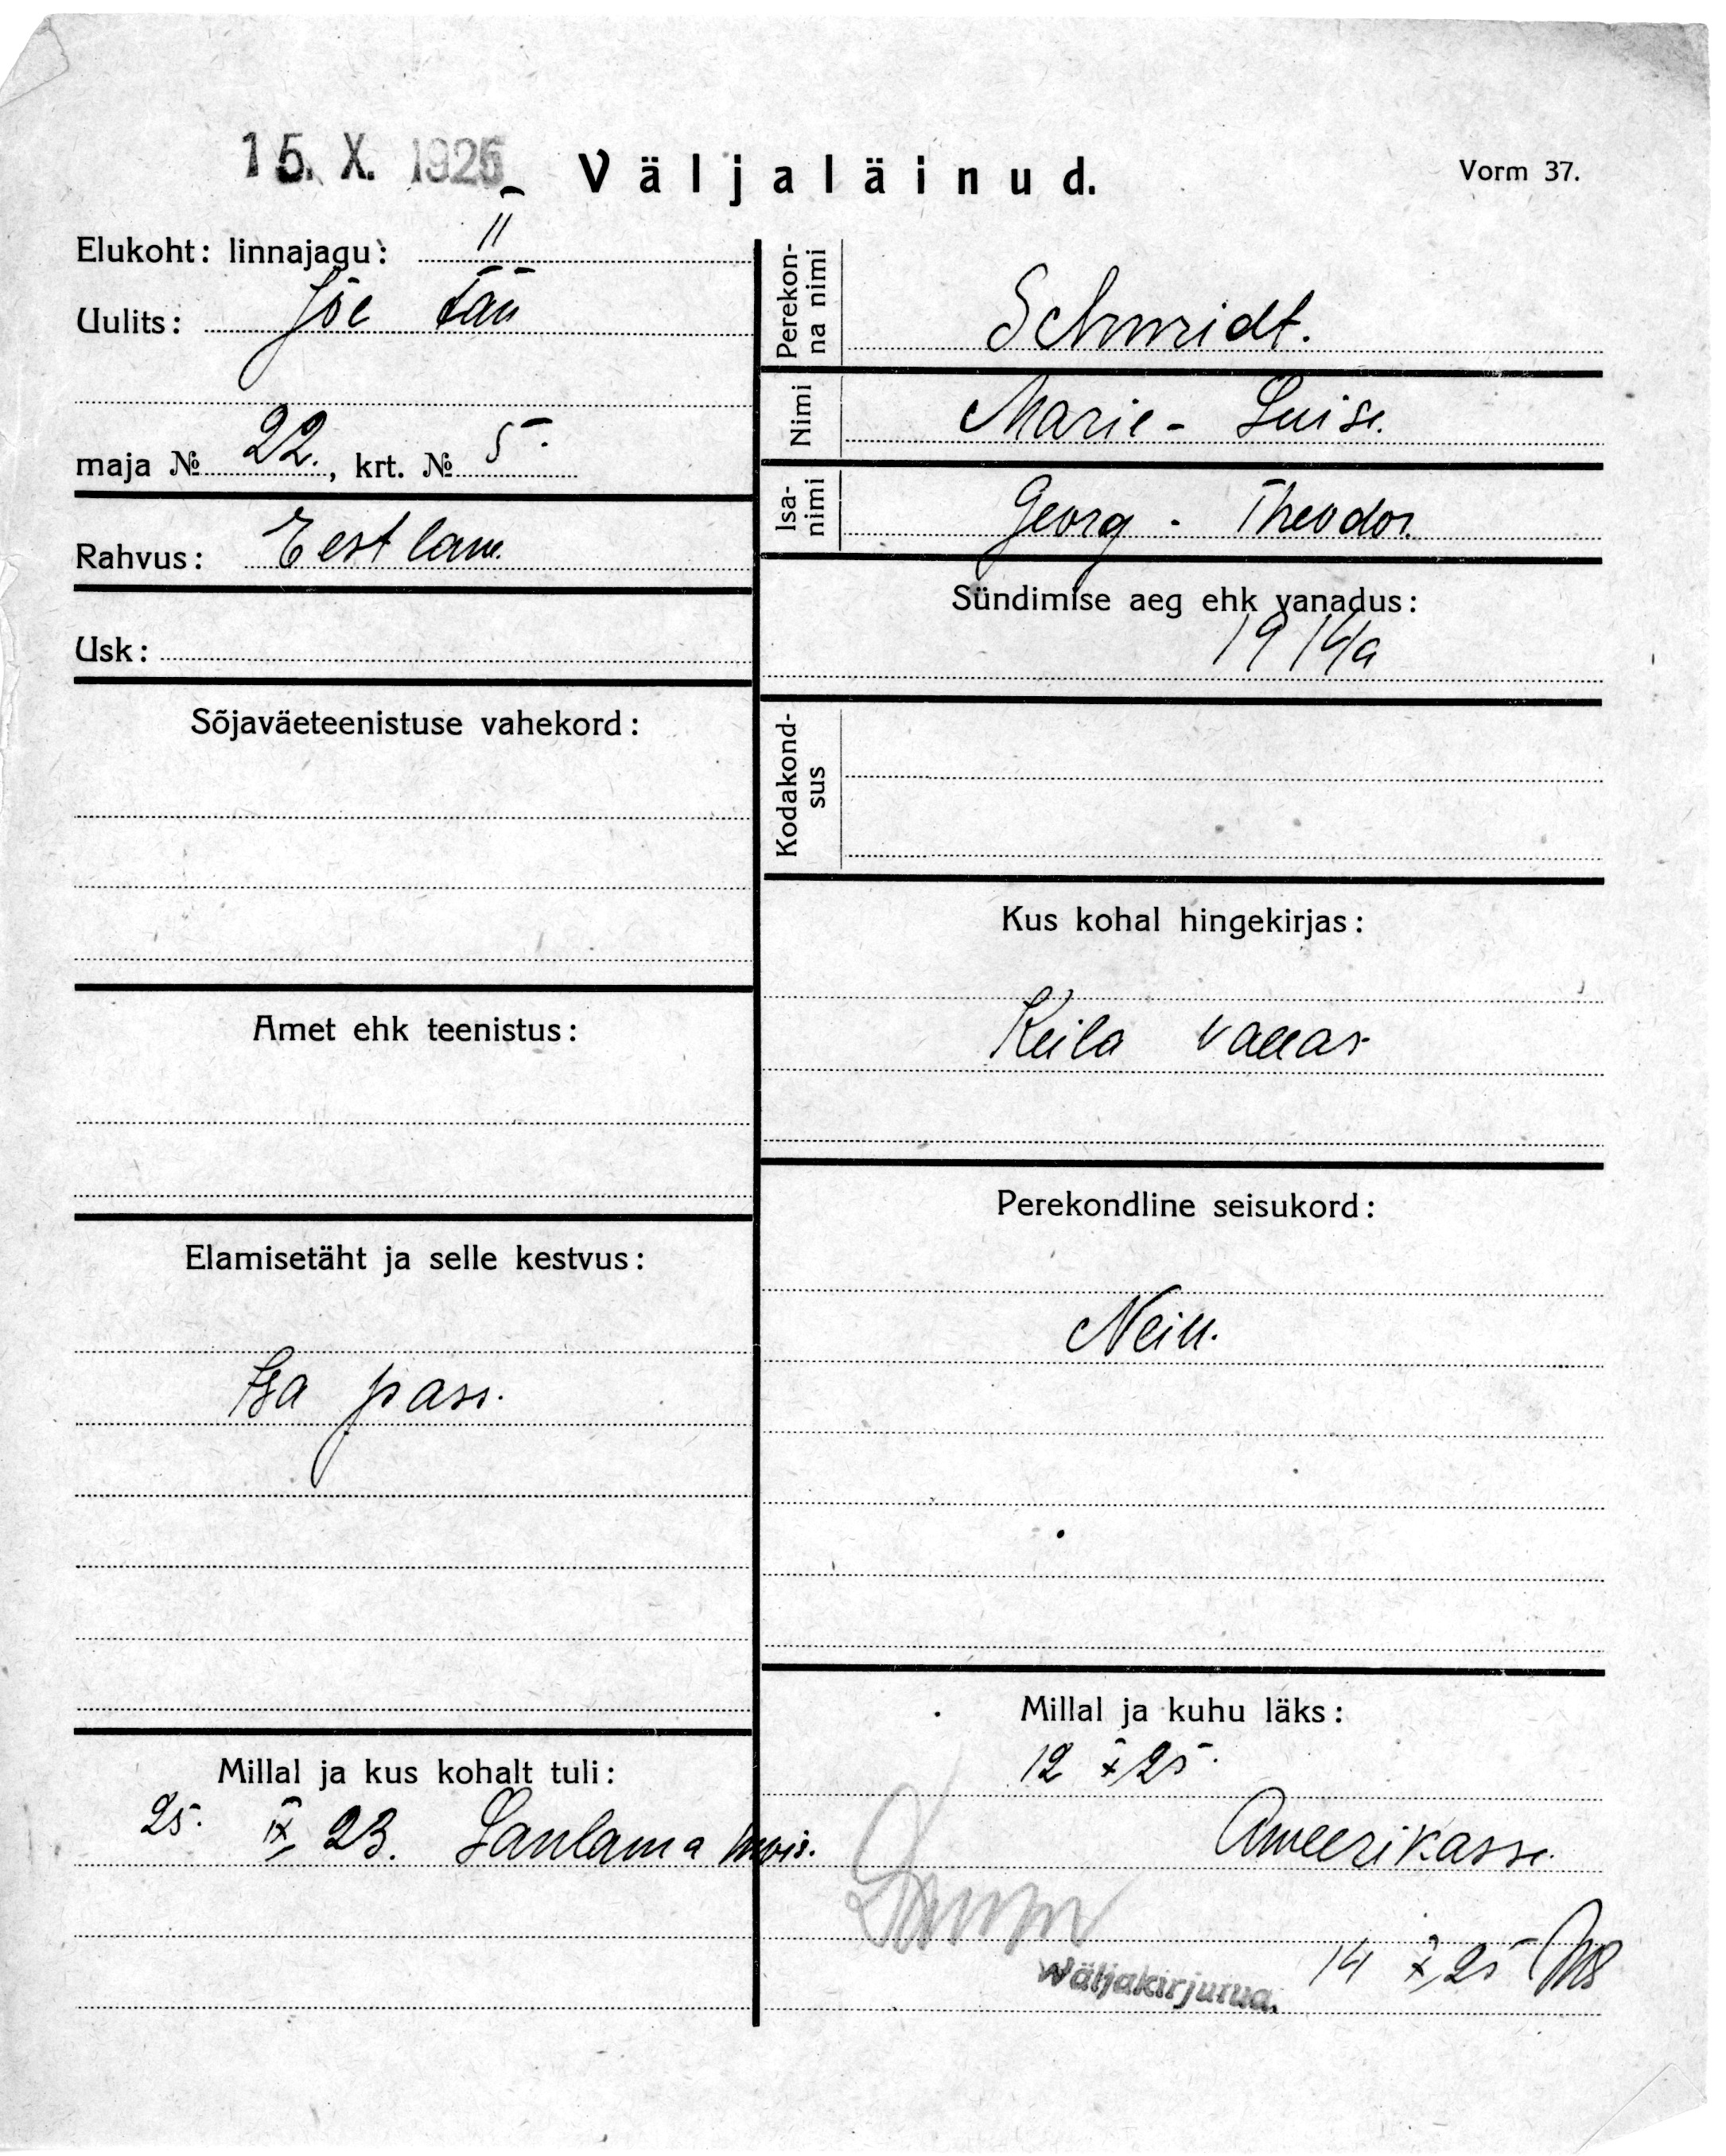 15. X. 1925
Väljaläinud.
Vorm 37.
Elukoht: linnajagu: II
Uulits: Jõe tän
maja № 22., krt. № 5.
Rahvus: Eestlane
Usk:
Sõjaväeteenistuse vahekord:
Amet ehk teenistus:
Elamisetäht ja selle kestvus:
Isa pass.
Millal ja kus kohalt tuli:
25. IX 23. Saulama mois.
Perekon-
na nimi
Schmidt.
Nimi
Marie - Luise.
Isa-
nimi
Georg - Theodor.
Sündimise aeg ehk vanadus:
1914a
Kodakond-
sus
Kus kohal hingekirjas:
Keila vallas
Perekondline seisukord:
Neiu.
Millal ja kuhu läks:
12 X 25.
Ameerikasse.
14 X 25
Wäljakirjutud.